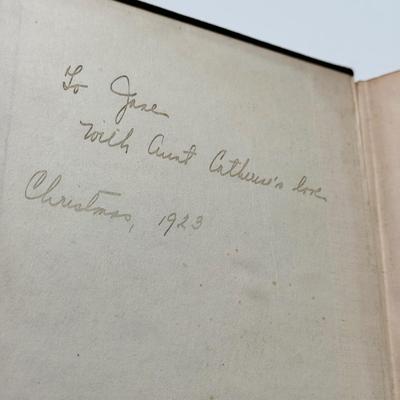 To Jane
With Aunt Catherine's love
Christmas, 1923